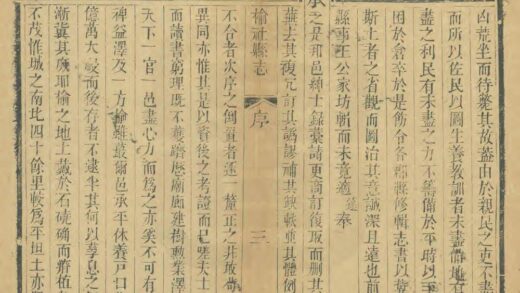 凶荒坐而待斃其故蓋由於親民之吏不盡
而所以佐民以圖生養教訓者未盡備地有
盡之利民有未盡之力不籌備於平時以至
困於倉卒於是飭令各郡縣修輯志書以
斯土者之省觀而圖治其意誠深且遠也前
縣事王公家坊嶄而未竟適奉
之是和邑紳士錄稾請更商訂復取而刪其
蕪去其複冗訂其譌謬補其缺軼更其體例
榆社縣志 序 三
不合者次序之倒置者逐一釐正之非故欲
異同亦惟其是以資後之考證而已夫士
而讀書窮理既不獲躋廊廟建樹勳業澤
天下一官一邑盡心力而為之亦奚不可有
碑益澤及一方榆雖蕞爾邑承平休養戶口
億萬大祲而後存者不逮半其何以孳息之
漸冀其康耶榆之地土於石磽确而瘠植
不茂惟城之南北四十餘里較為平坦土亦